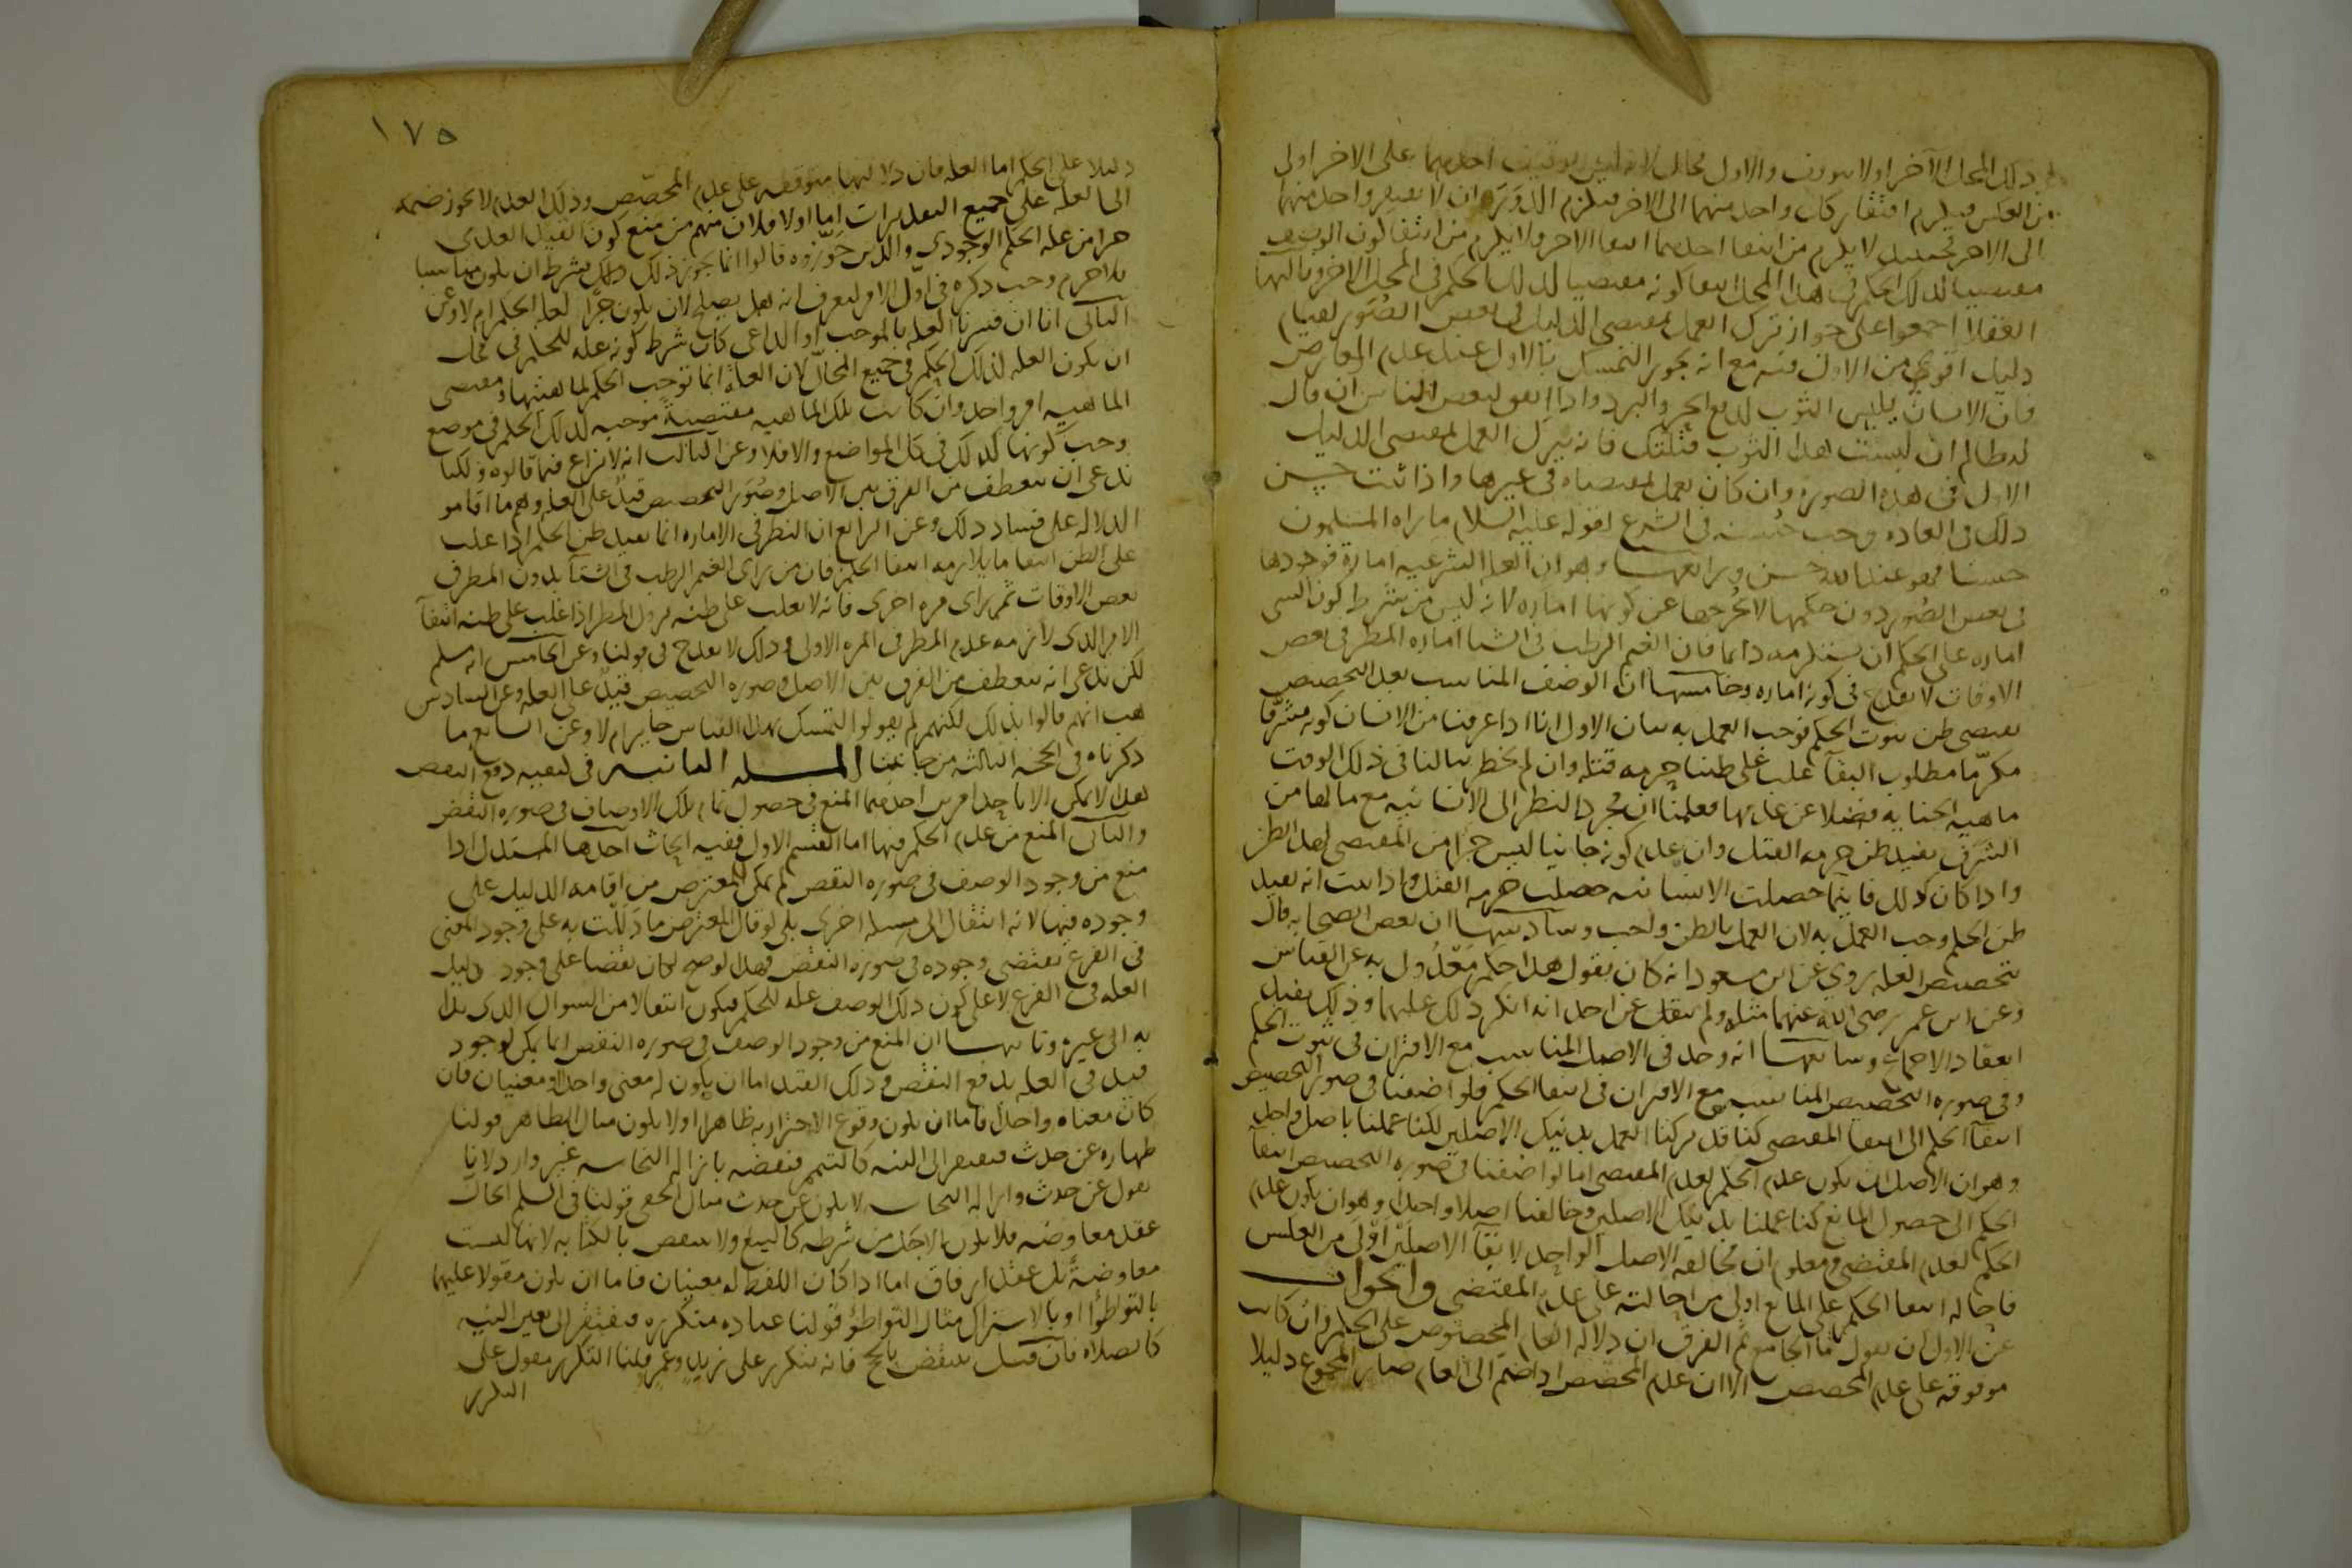 ذلك المحل الآخر اولا يتوقف والاول محال لانه ليس توقف احدهما على الاخر اولى
من العكس فيلزم افتقار كل واحد منهما الى الاخر فيلزم الدور وان لا يفتقر واحد منهما
الى الاخر فحينئذ لا يلزم من انتفا احدهما انتفا الاخر ولا يلزم من انتفا كون الوصف
مقتضيا لذلك الحكم في هذا المحل انتفا كونه مقتضيا لذلك الحكم في المحل الاخر وثالثها
العقلا اجمعوا على جواز ترك العمل بمقتضى الدليل في بعض الصور لقيام
دليل اقوى من الاول فيه مع انه يجوز التمسك بالاول عند عدم المعارض
فان الانسان يلبس الثوب لدفع الحر والبرد واذا اتفق لبعض الناس ان قال
له ظالم ان لبست هذا الثوب قتلتك فانه يترك العمل بمقتضى الدليل
الاول في هذه الصورة وان كان يعمل بمقتضاه في غيرها واذا ثبت حسن
ذلك في العاده وجب حسنه في الشرع لقوله عليه السلام ما راه المسلمون
حسنا فهو عند الله حسن ورابعها وهو ان العلل الشرعيه امارة فوجودها
في بعض الصور دون حكمها لا يخرجها عن كونها اماره لانه ليس من شرط كون الشي
اماره على الحكم ان يستلزمه دائما فان الغيم الرطب في الشتا اماره المطر في بعض
الاوقات لا يقدح في كونه اماره وخامسها ان الوصف المناسب بعد التخصيص
يقتضى ظن ثبوت الحكم فوجب العمل به بيان الاول انا اذا عرفنا من الانسان كونه مشرفا
مكرما مطلوب البقآ غلب على ظننا حرمه قتله وان لم يخطر ببالنا في ذلك الوقت
ماهيه الجنايه فضلا عن عدمها فعلمنا ان مجرد النظر الى الانسانيه مع ما لها من
الشرف يفيد ظن حرمه القتل وان عدم كونه جانيا ليس جزأ من المقتضى لهذا الظن
واذا كان كذلك فاينما حصلت الانسانيه حصلت حرمه القتل واذا ثبت انه يفيد
ظن الحكم وجب العمل به لان العمل بالظن واجب وسادسها ان بعض الصحابه قال
بتخصيص العله روي عن ابن مسعود انه كان يقول هذا حكم معدول به عن القياس
وعن ابن عمر رضى الله عنهما مثله ولم ينقل عن احد انه انكر ذلك عليهما وذلك يفيد
انعقاد الاجماع وسابعها انه وجد في الاصل المناسب مع الاقتران في ثبوت الحكم
وفي صوره التخصيص المناسب مع الاقتران في انتفا الحكم فلو اضفنا في صوره التخصيص
انتفآ الحكم الى انتفا المقتضى كنا قد تركنا العمل بذينك الاصلين لكنا عملنا باصل واحد
وهو ان الاصل ان يكون عدم الحكم لعدم المقتضى اما لو اضفنا في صوره التخصيص انتفآ
الحكم الى حصول المانع كنا عملنا بذينك الاصلين وخالفنا اصلا واحدا وهو ان يكون عدم
الحكم لعدم المقتضى ومعلوم ان مخالفه الاصل الواحد لابقآ الاصلين اولى من العكس
فاحاله انتفا الحكم على المانع اولى من احالته على عدم المقتضى والجواب
عن الاول ان نقول ما الجامع ثم الفرق ان دلاله العام المخصوص على الحكم وان كانت
موقوفه على عدم المخصص الا ان عدم المخصص اذا ضم الى العام صار المجموع دليلا
١٧٥
دليلا على الحكم اما العله فان دلالتها متوقفه على عدم المخصص وذلك العدم لا يجوز ضمه
الى العله على جميع التقديرات اما اولا فلان منهم من منع كون القيد العدمى
جزأ من عله الحكم الوجودي والذين جوزوه قالوا انما يجوز ذلك بشرط ان يكون مناسبا
فلا جرم وجب ذكره في اول الامر ليعرف انه هل يصلح لان يكون جزأ لعله الحكم ام لا وعن
الثاني انا ان فسرنا العله بالموجب او الداعى كان شرط كونه عله للحكم في محل
ان يكون العله لذلك الحكم في جميع المحال لان العله انما توجب الحكم لماهيتها ومقتضى
الماهيه امر واحد وان كانت تلك الماهيه مقتضية موجبه لذلك الحكم في موضع
وجب كونها كذلك في كل المواضع والا فلا وعن الثالث انه لا نزاع فيما قالوه ولكنا
ندعى ان ينعطف من الفرق بين الاصل وصور التخصيص قيد على العله وهم ما اقاموا
الدلاله على فساد ذلك وعن الرابع ان النظر في الاماره انما يفيد ظن الحكم اذا غلب
على الظن انتفا ما يلازمه انتفا الحكم فان من راى الغيم الرطب في الشتآ بدون المطر في
بعض الاوقات ثم راى مره اخرى فانه لا يغلب على ظنه نزول المطر الا اذا غلب على ظنه انتفآ
الامر الذى لازمه عدم المطر في المره الاولى وذلك لا يقدح في قولنا وعن الخامس انه مسلم
لكن ندعى انه ينعطف من الفرق بين الاصل وصوره التخصيص قيد على العله وعن السادس
هب انهم قالوا بذلك لكنهم لم يقولوا التمسك بهذا القياس جايز ام لا وعن السابع ما
ذكرناه في الحجه الثالثه من جانبنا المسله الثانيه في كيفيه دفع النقض
هذا لا يمكن الا باحد امرين احدهما المنع في حصول تمام تلك الاوصاف في صوره النقض
والثاني المنع من عدم الحكم فيها اما القسم الاول ففيه ابحاث احدها المستدل اذا
منع من وجود الوصف في صوره النقض لم يمكن المعترض من اقامه الدليل على
وجوده فيها لانه انتقال الى مسله اخرى بلى لو قال المعترض ما دللت به على وجود المعنى
في الفرع يقتضى وجوده في صوره النقض فهذا لو صح لكان نقضا على وجود دليل
العله في الفرع لا على كون ذلك الوصف عله للحكم فيكون انتقالا من السوال الذى بدا
به الى غيره وثانيها ان المنع من وجود الوصف في صوره النقض انما يمكن لوجود
قيد في العله يدفع النقض وذلك القيد اما ان يكون له معنى واحد او معنيان فان
كان معناه واحدا فاما ان يكون وقوع الاحتراز به ظاهرا او لا يكون مثال الظاهر قولنا
طهاره عن حدث فيفتقر الى النيه كالتيمم فنقضه بازاله النجاسه غير وارد لانا
نقول عن حدث وازاله النجاسه لا يكون عن حدث مثال الخفى قولنا في السلم الحال
عقد معاوضه فلا يكون الاجل من شرطه كالبيع ولا ينتقض بالكتابه لانها ليست
معاوضة بل عقد ارفاق اما اذا كان اللفظ له معنيان فاما ان يكون مقولا عليهما
بالتواطؤ او بالاشتراك مثال التواطؤ قولنا عباده متكرره فيفتقر الى تعين النيه
كالصلاه فان قيل ينتقض بالحج فانه يتكرر على زيد وعمر قلنا التكرر مقول على
التكرر